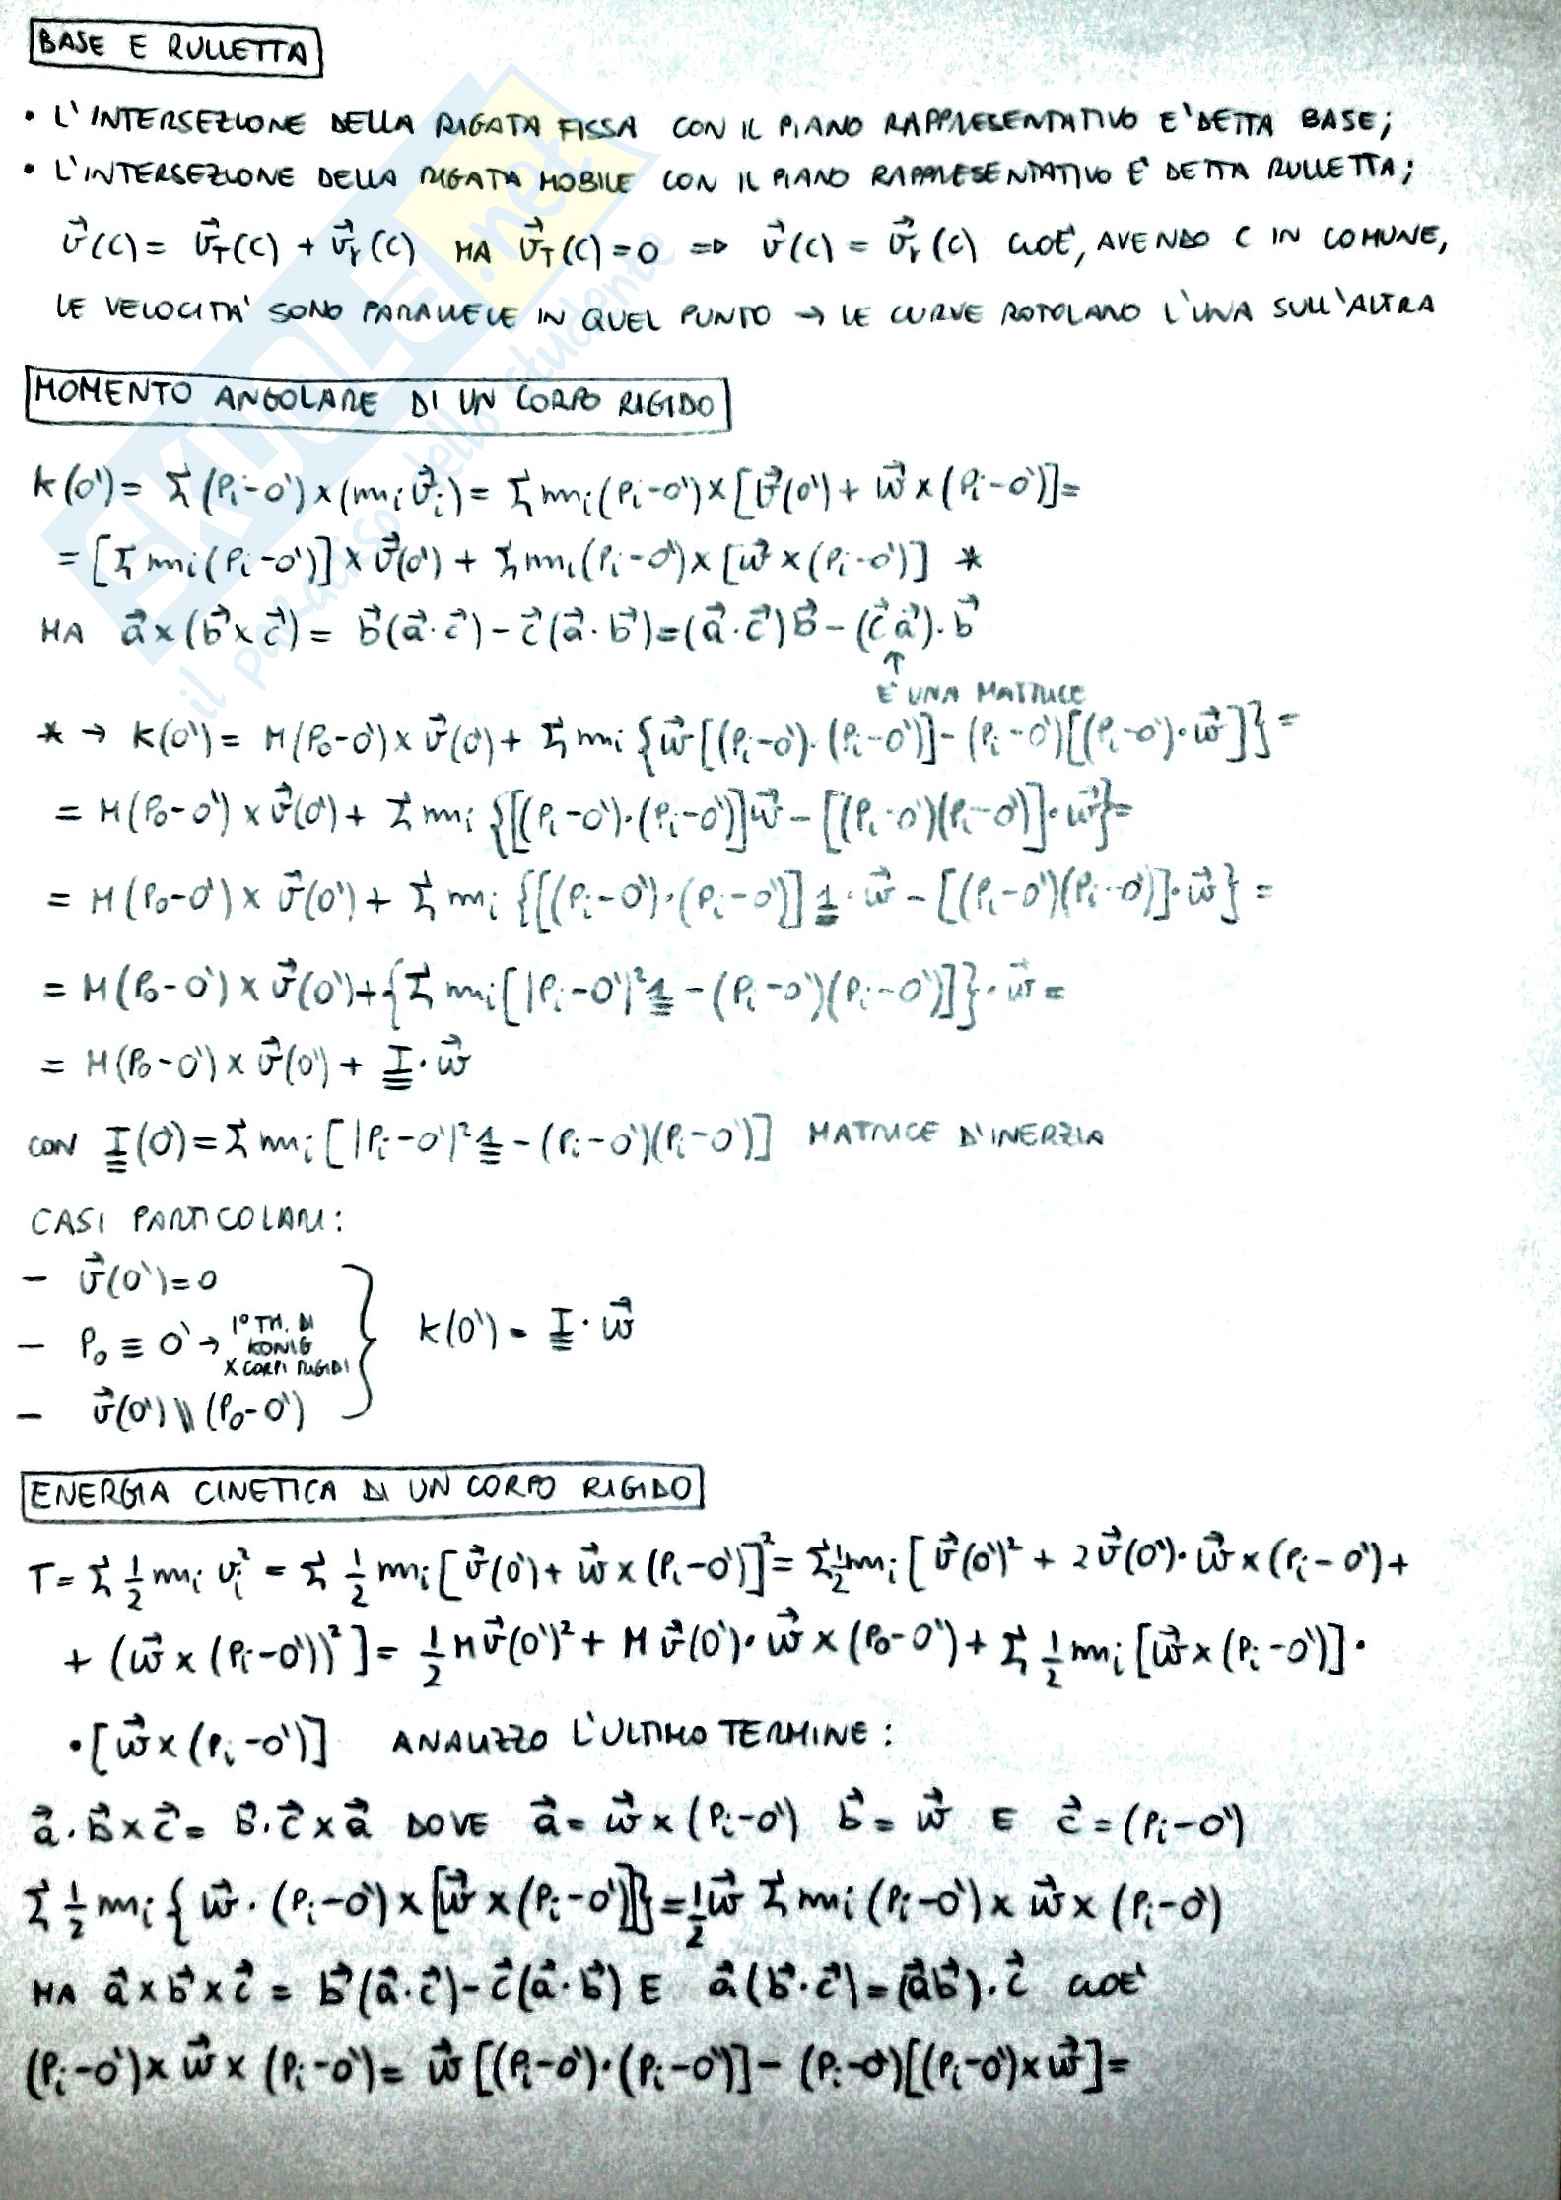 BASE E RULLETTA
• L'INTERSEZIONE DELLA RIGATA FISSA CON IL PIANO RAPPRESENTATIVO E' DETTA BASE;
• L'INTERSEZIONE DELLA RIGATA MOBILE CON IL PIANO RAPPRESENTATIVO E' DETTA RULLETTA;
v⃗(C) = v⃗_T(C) + v⃗_r(C) MA v⃗_T(C) = 0 ⇒ v⃗(C) = v⃗_r(C) CIOE', AVENDO C IN COMUNE,
LE VELOCITA' SONO PARALLELE IN QUEL PUNTO → LE CURVE ROTOLANO L'UNA SULL'ALTRA
MOMENTO ANGOLARE DI UN CORPO RIGIDO
K(O') = Σ (Pi-O') × (mi v⃗i) = Σ mi (Pi-O') × [v⃗(O') + w⃗ × (Pi-O')] =
= [Σ mi (Pi-O')] × v⃗(O') + Σ mi (Pi-O') × [w⃗ × (Pi-O')] *
MA a⃗ × (b⃗ × c⃗) = b⃗(a⃗·c⃗) - c⃗(a⃗·b⃗) = (a⃗·c⃗)b⃗ - (c⃗ a⃗)·b⃗
↑
E' UNA MATRICE
* → K(O') = M(Po-O') × v⃗(O') + Σ mi {w⃗[(Pi-O')·(Pi-O')] - (Pi-O')[(Pi-O')·w⃗]} =
= M(Po-O') × v⃗(O') + Σ mi {[(Pi-O')·(Pi-O')]w⃗ - [(Pi-O')(Pi-O')]·w⃗} =
= M(Po-O') × v⃗(O') + Σ mi {[(Pi-O')·(Pi-O')] 1·w⃗ - [(Pi-O')(Pi-O')]·w⃗} =
= M(Po-O') × v⃗(O') + {Σ mi [|Pi-O'|² 1 - (Pi-O')(Pi-O')]}·w⃗ =
= M(Po-O') × v⃗(O') + I·w⃗
CON I(O') = Σ mi [|Pi-O'|² 1 - (Pi-O')(Pi-O')] MATRICE D'INERZIA
CASI PARTICOLARI:
- v⃗(O') = 0
- Po ≡ O' → 1° TH. DI KONIG X CORPI RIGIDI
K(O') = I·w⃗
- v⃗(O') \\ (Po-O')
ENERGIA CINETICA DI UN CORPO RIGIDO
T = Σ 1/2 mi vi² = Σ 1/2 mi [v⃗(O') + w⃗ × (Pi-O')]² = Σ 1/2 mi [v⃗(O')² + 2v⃗(O')·w⃗ × (Pi-O') +
+ (w⃗ × (Pi-O'))²] = 1/2 M v⃗(O')² + M v⃗(O')·w⃗ × (Po-O') + Σ 1/2 mi [w⃗ × (Pi-O')]·
·[w⃗ × (Pi-O')] ANALIZZO L'ULTIMO TERMINE:
a⃗·b⃗ × c⃗ = b⃗·c⃗ × a⃗ DOVE a⃗ = w⃗ × (Pi-O') b⃗ = w⃗ E c⃗ = (Pi-O')
Σ 1/2 mi {w⃗·(Pi-O') × [w⃗ × (Pi-O')]} = 1/2 w⃗ Σ mi (Pi-O') × w⃗ × (Pi-O')
MA a⃗ × b⃗ × c⃗ = b⃗(a⃗·c⃗) - c⃗(a⃗·b⃗) E a⃗(b⃗·c⃗) = (a⃗b⃗)·c⃗ CIOE'
(Pi-O') × w⃗ × (Pi-O') = w⃗[(Pi-O')·(Pi-O')] - (Pi-O')[(Pi-O') × w⃗] =
SKUOLA.net
il paradiso dello studente